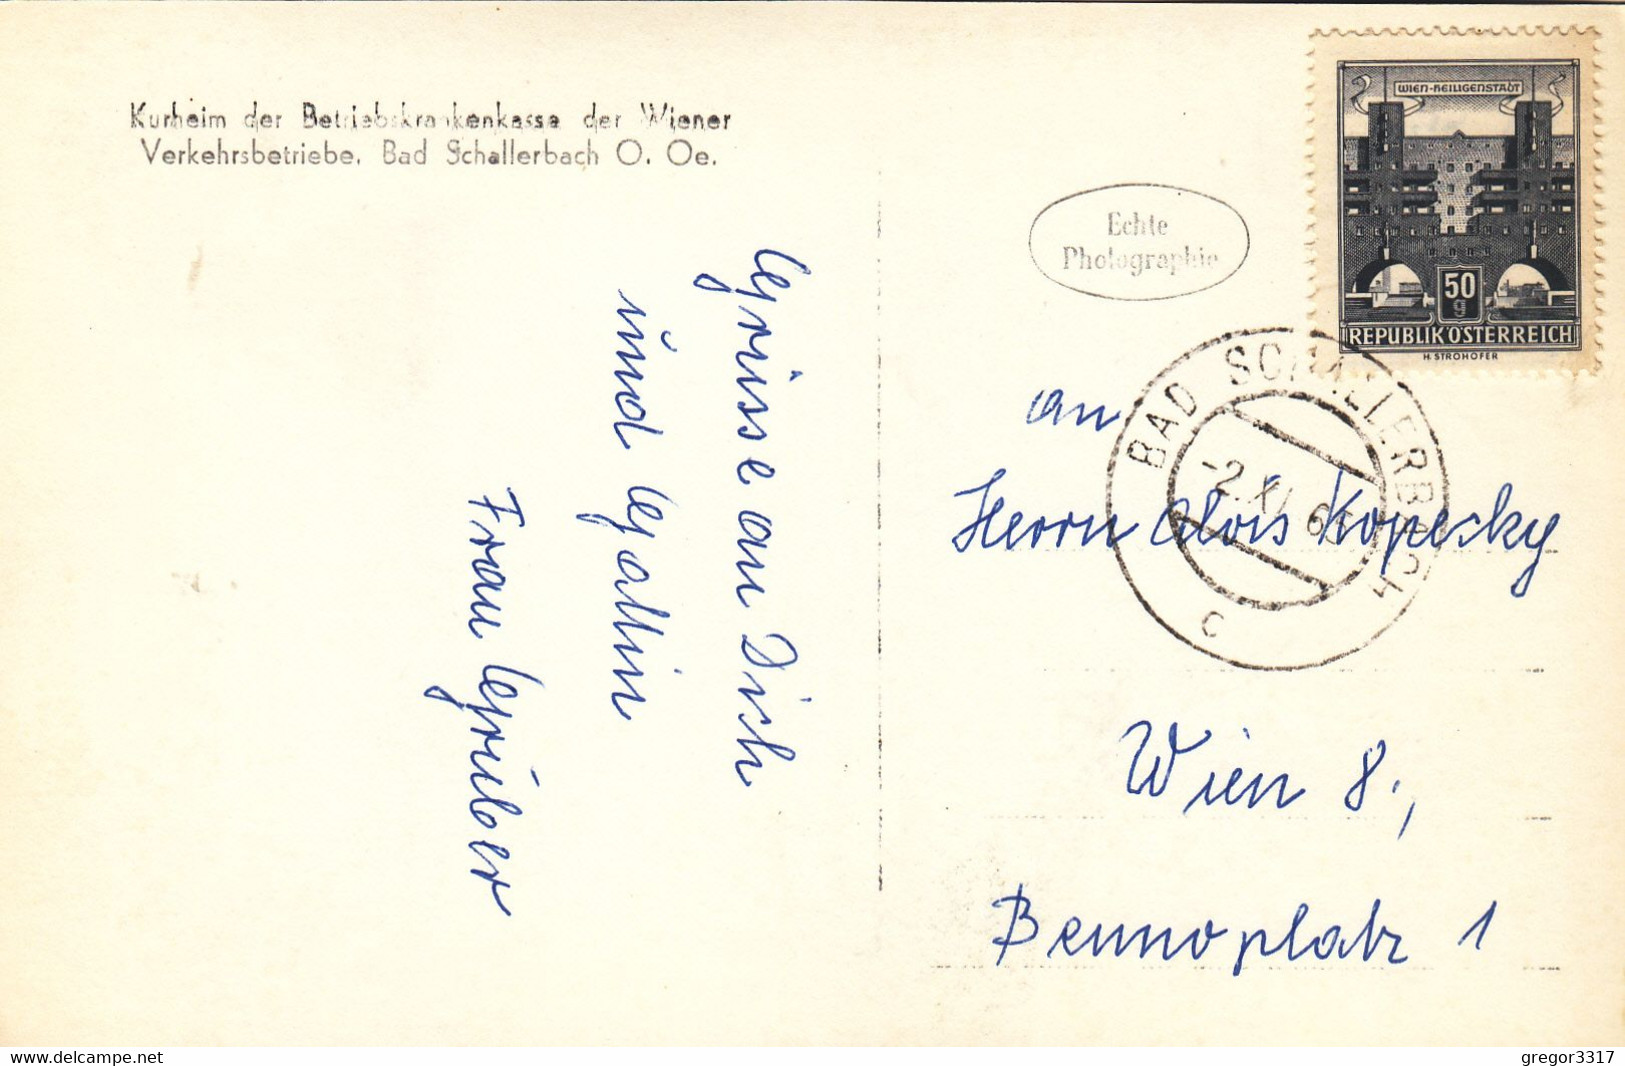 Kurheim der Betriebskrankenkasse der Wiener
Verkehrsbetriebe, Bad Schallerbach O. Oe.
Echte
Photographie
WIEN-HEILIGENSTADT
50
g
REPUBLIK ÖSTERREICH
H. STROHOFER
BAD SCHALLERBACH
-2.XI 65
c
Grüsse an Dich
und Gattin
Frau Gruber
an
Herrn Alois Kopecky
Wien 8.,
Bennoplatz 1
delcampe.net
gregor3317